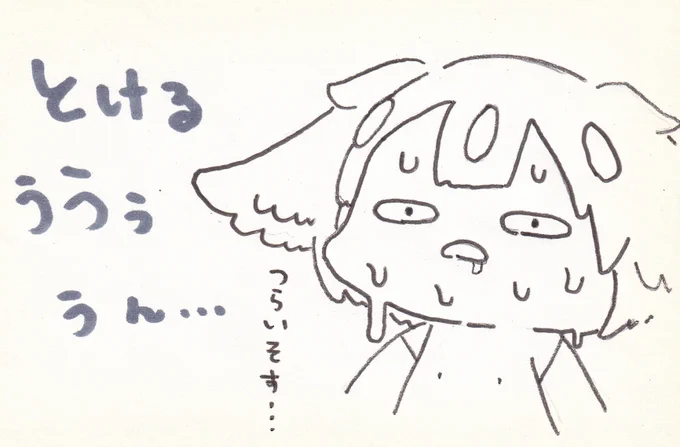 とける
ううぅ
うん…
つらいそす…